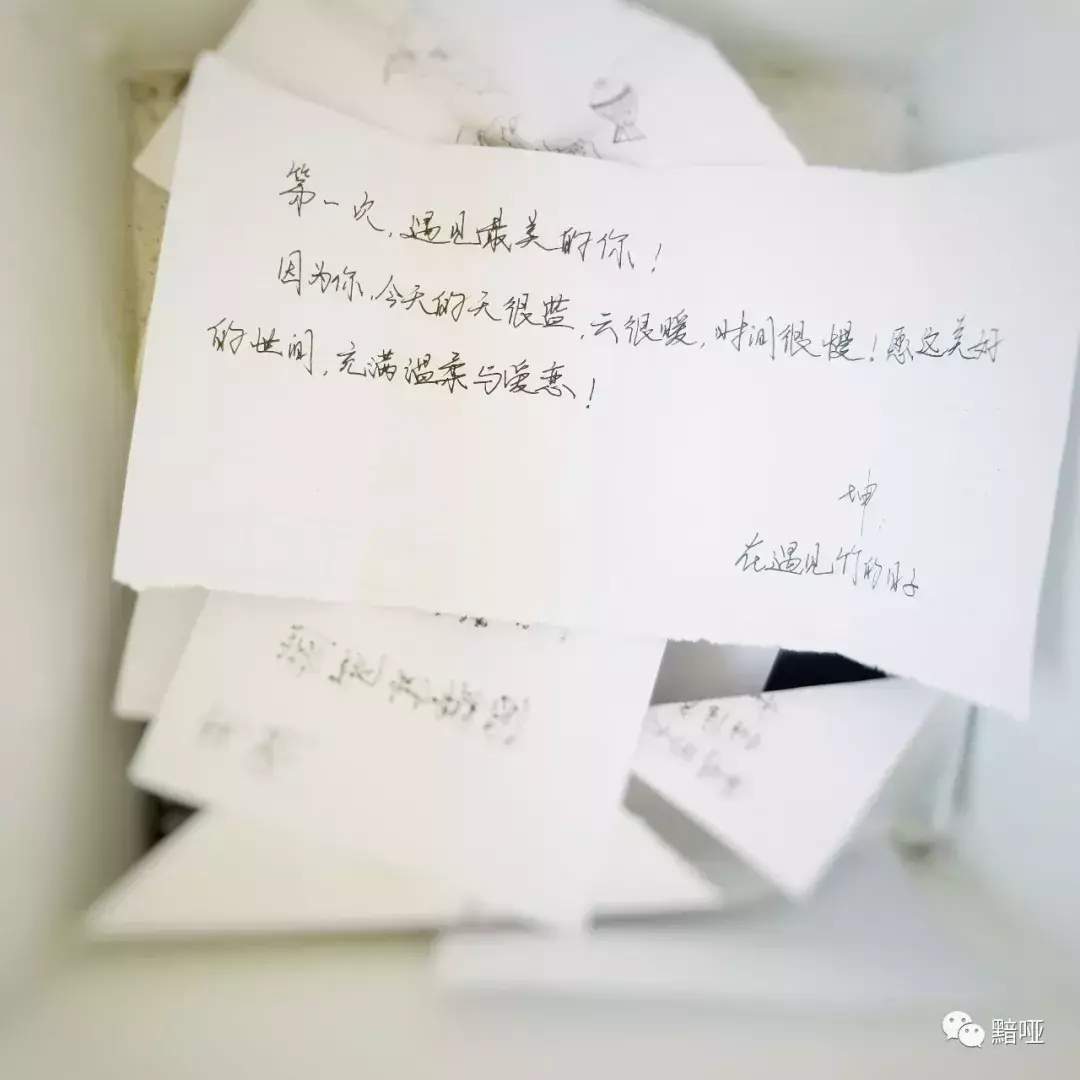 第一次,遇见最美的你!
因为你,今天的天很蓝,云很暖,时间很慢!愿这美好
的世间,充满温柔与爱恋!
坤.
在遇见竹的日子
黯哑